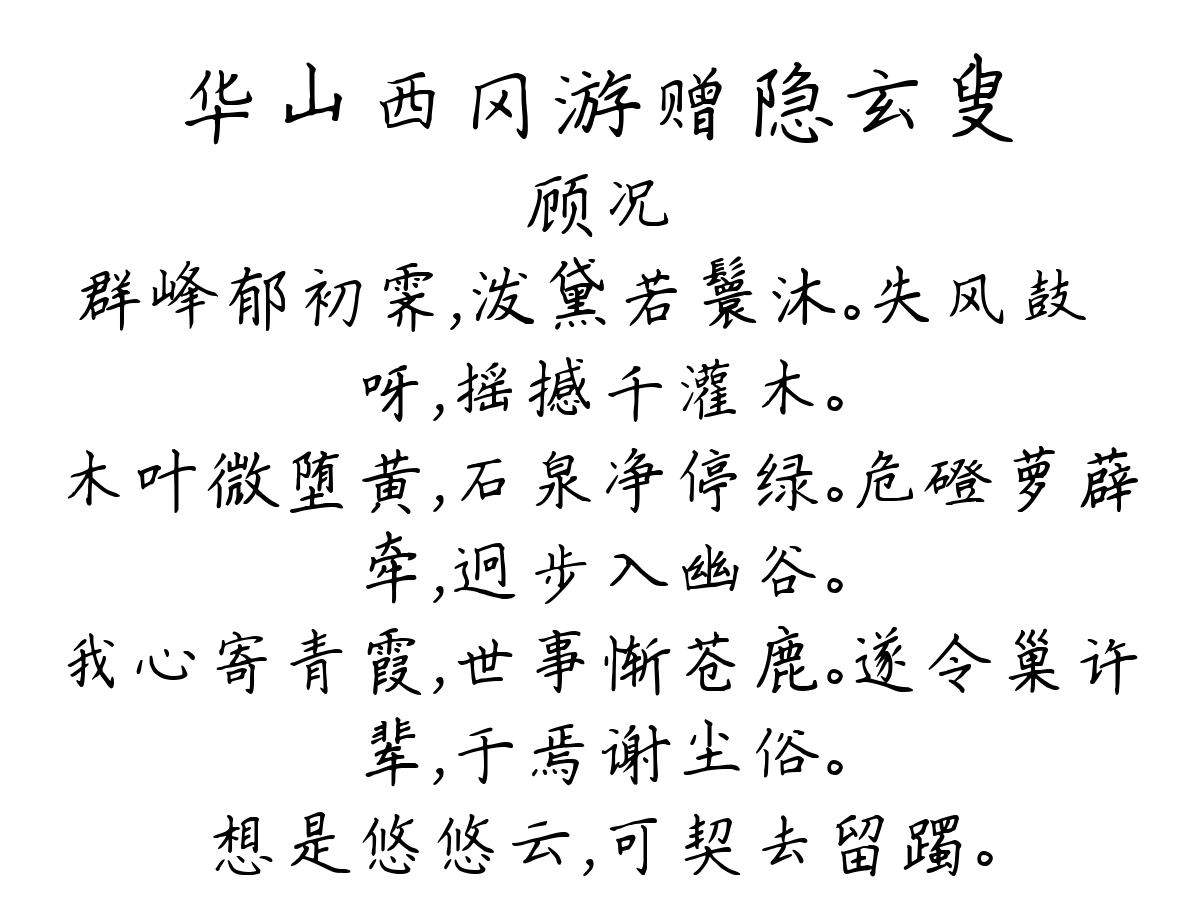 华山西冈游赠隐玄叟
顾况
群峰郁初霁,泼黛若鬟沐。失风鼓
呀,摇撼千灌木。
木叶微堕黄,石泉净停绿。危磴萝薜
牵,迥步入幽谷。
我心寄青霞,世事惭苍鹿。遂令巢许
辈,于焉谢尘俗。
想是悠悠云,可契去留躅。